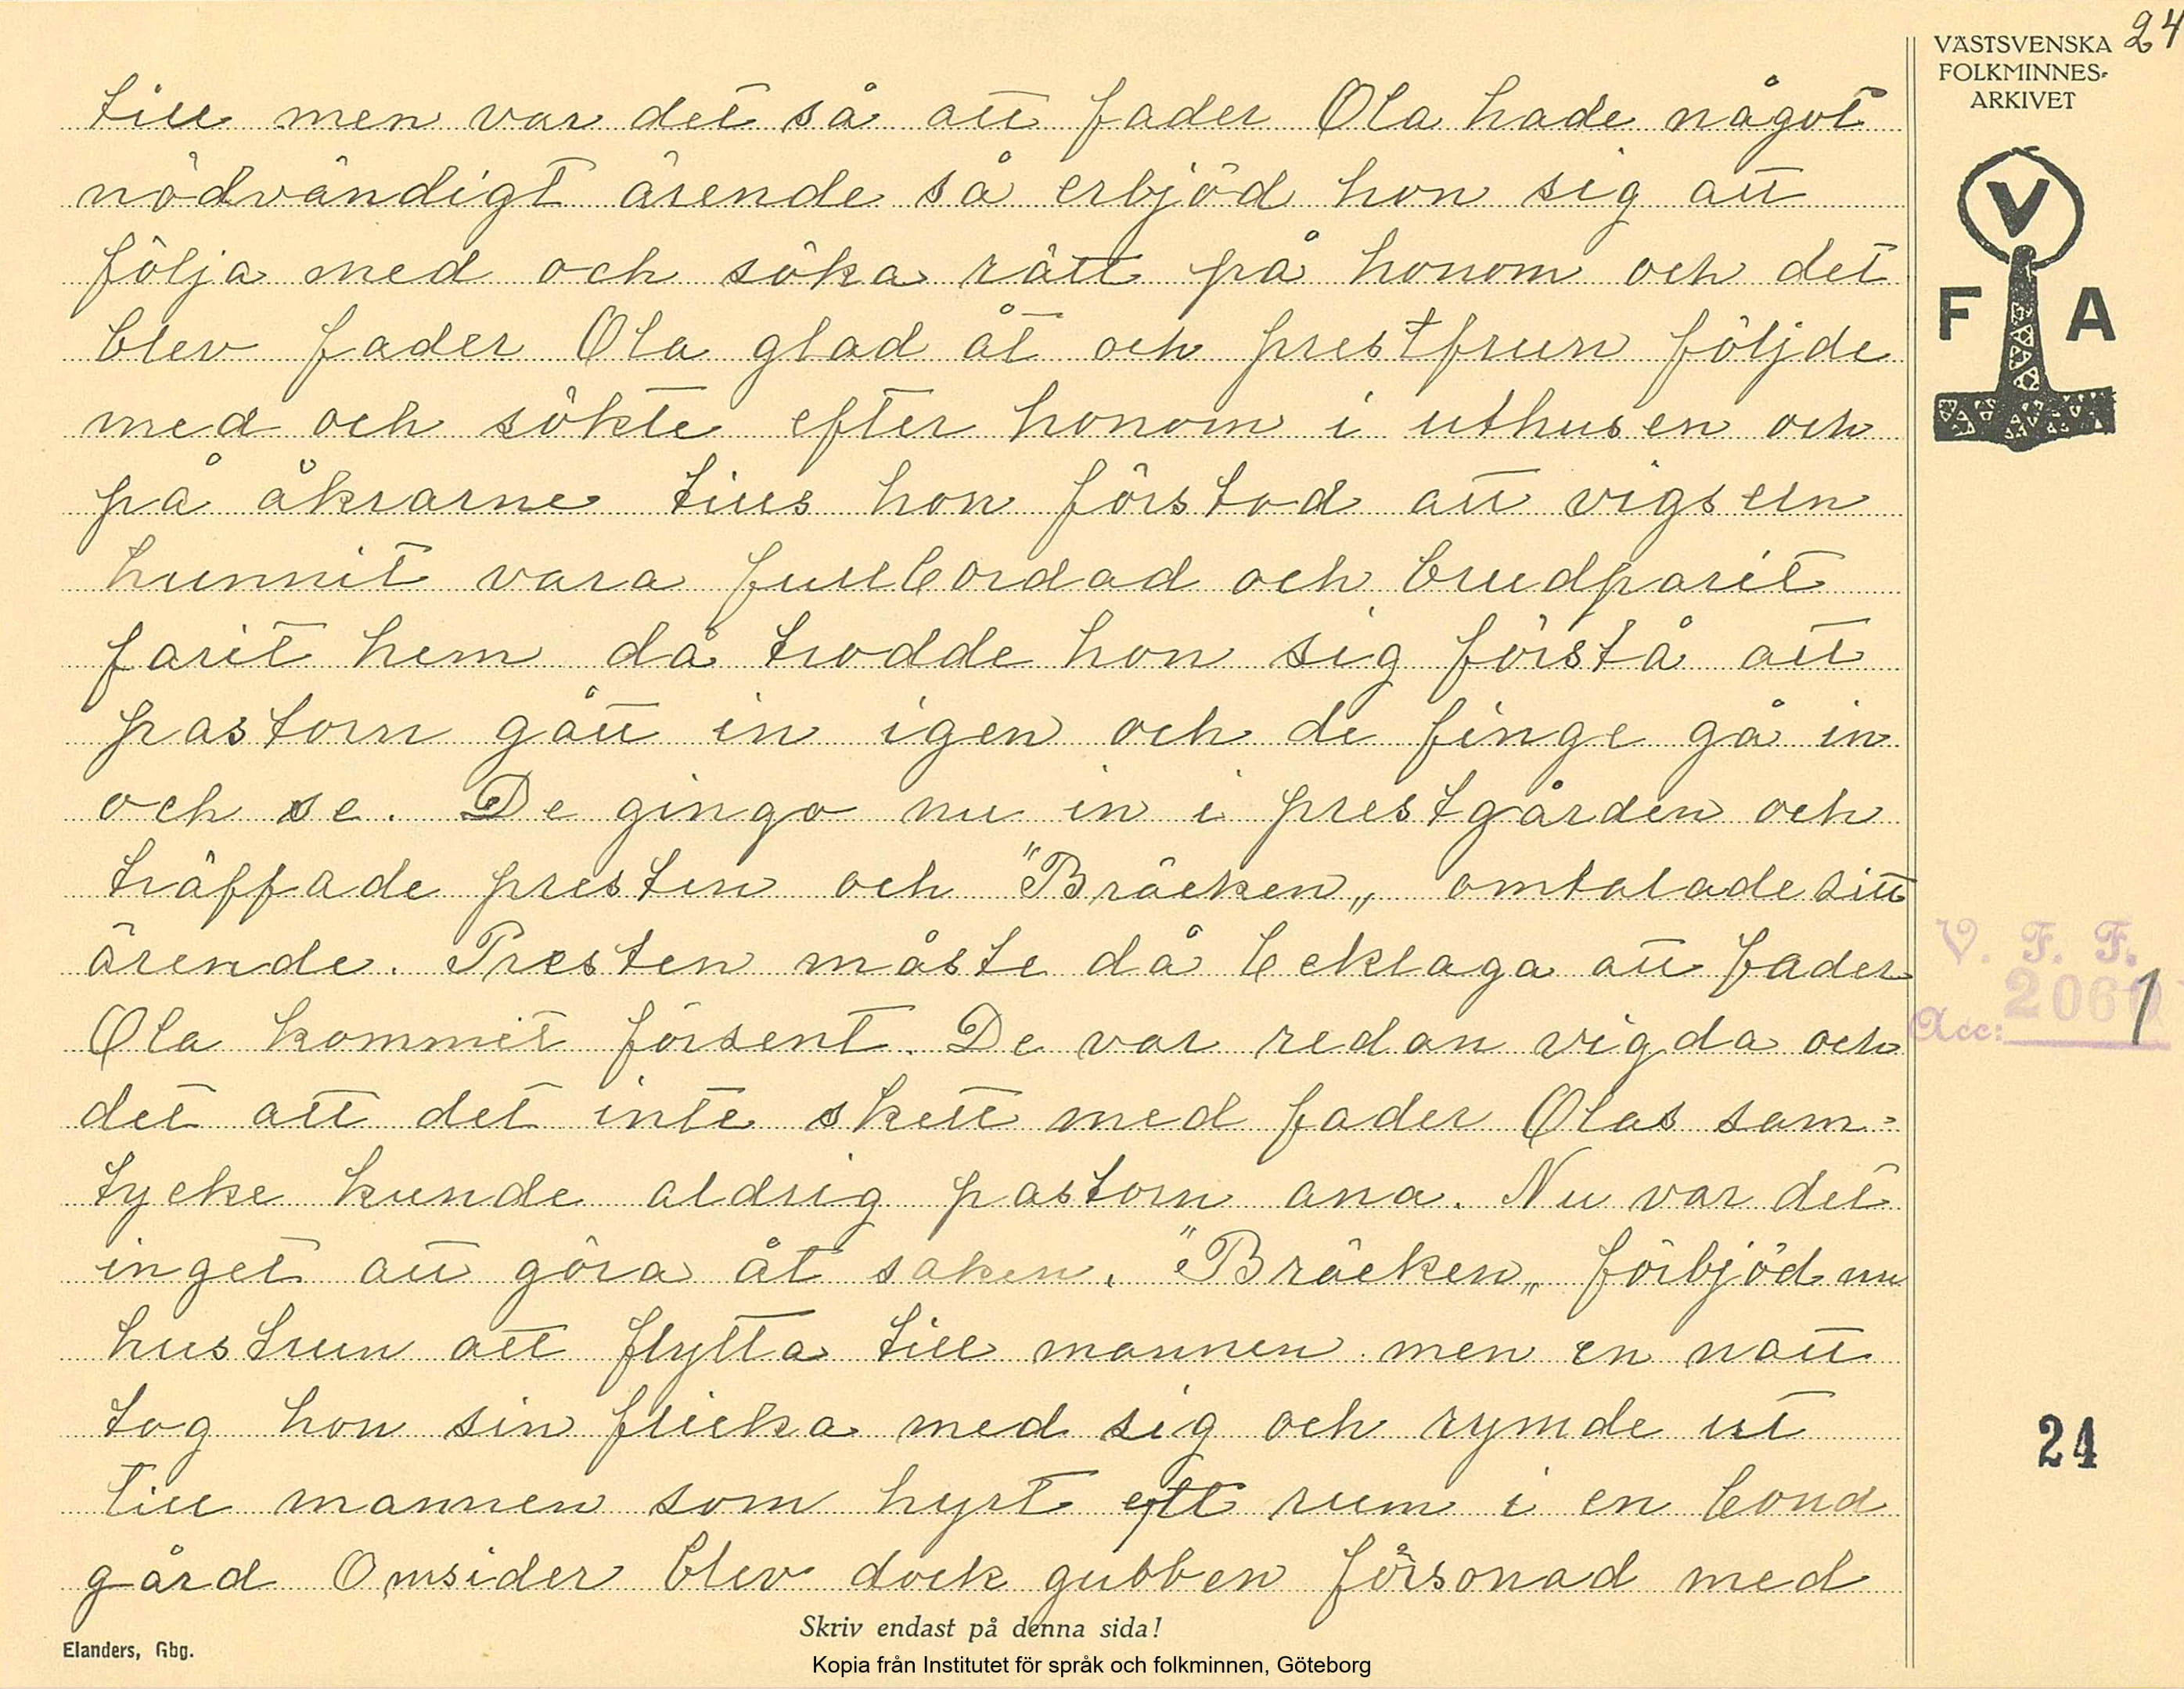 24
VÄSTSVENSKA
FOLKMINNES-
ARKIVET
V
F A
till men var det så att fader Ola hade något
nödvändigt ärende så erbjöd hon sig att
följa med och söka rätt på honom och det
blev fader Ola glad åt och prestfrun följde
med och sökte efter honom i uthusen och
på åkrarne tills hon förstod att vigseln
hunnit vara fullbordad och brudparet
farit hem då trodde hon sig förstå att
pastorn gått in igen och de finge gå in
och se. De gingo nu in i prestgården och
träffade presten och "Bräcken„ omtalade sitt
ärende. Presten måste då beklaga att fader
Ola kommit försent. De var redan vigda och
det att det inte skett med fader Olas sam-
tycke kunde aldrig pastorn ana. Nu var det
inget att göra åt saken. "Bräcken„ förbjöd nu
hustrun att flytta till mannen men en natt
tog hon sin flicka med sig och rymde ut
till mannen som hyrt ett rum i en bond
gård Omsider blev dock gubben försonad med
V. F. F.
Acc: 2061
24
Skriv endast på denna sida!
Elanders, Gbg.
Kopia från Institutet för språk och folkminnen, Göteborg